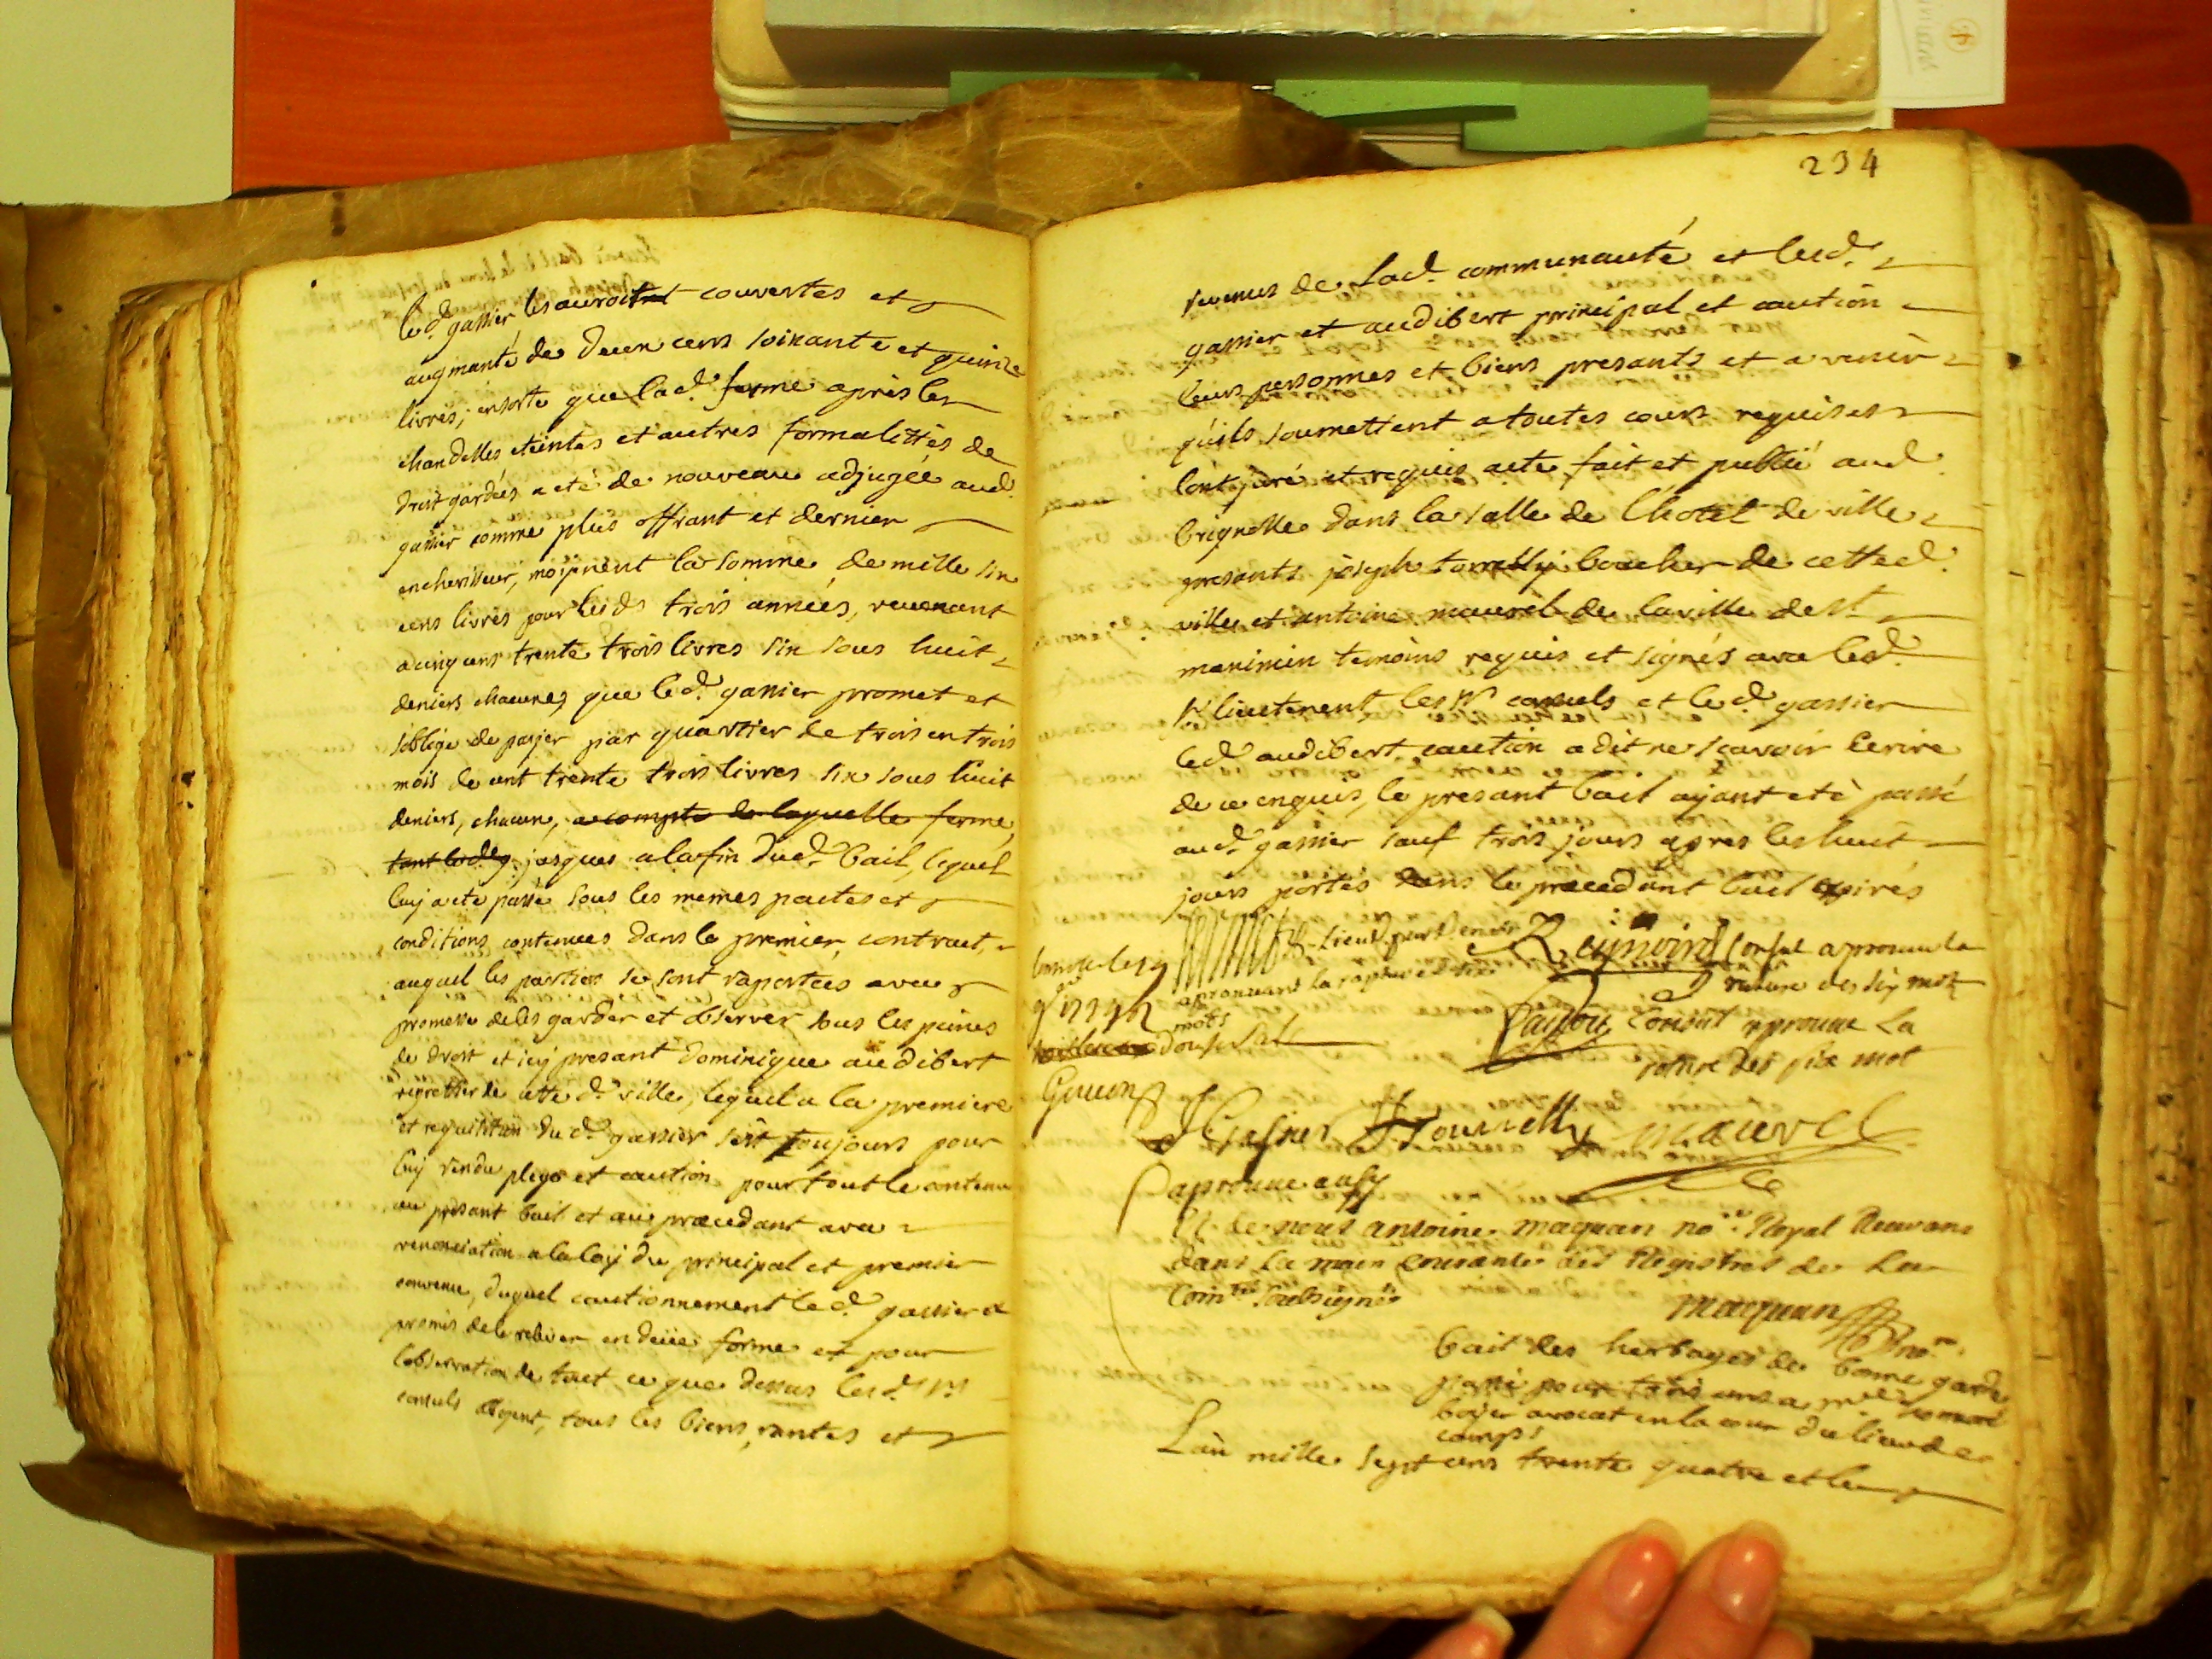 led. gassier les auroit couvertes et
augmanté de deux cens soixante et quinze
livres, ensorte que lad. ferme après les
chandelles eteintes et autres formalittés de
droit gardées a eté de nouveau adjugée aud.
gassier comme plus offrant et dernier
encherisseur, moiənent la somme de mille six
cens livres pour lesds trois années, revenant
a cinq cens trente trois livres six sous huit
deniers chacune, que led. gassier promet et
s'oblige de payer par quartier de trois en trois
mois de cent trente trois livres six sous huit
deniers, chacun, a compte de laquelle ferme,
jusques a la fin dud. bail, lequel
luy a eté passé sous les memes pactes et
conditions contenues dans le premier contract,
auquel les parties se sont raportées avec
promesse de les garder et observer sous les peines
de droit et icy presant dominique audibert
regrettier de cette d. ville, lequel a la premiere
et requisition du d. gassier s'est toujours pour
luy rendu plege et caution pour tout le contenu
au presant bail et au precedant avec
renonciation a la loy du principal et premier
convenu, duquel cautionnement led. gassier a
promis de le relever en deüe forme et pour
l'observation de tout ce que dessus lesd. srs
consuls obligent, tous les biens, rentes et
234
revenus de lad. communauté et lesd.
gassier et audibert principal et caution
leurs personnes et biens presants et a venir
qu'ils soumettent a toutes cours requises
l'ont juré et requis acte fait et publié aud.
brignolle dans la salle de l'hotel de ville
presants joseph tourelly boucher de cette d.
ville et antoine maurel de la ville de st
maximin temoins requis et signés avec led.
sr lieutenent les srs consuls et le d. gassier
led. audibert caution a dit ne sçavoir ecrire
de ce enquis, le presant bail ayant eté passé
aud. gassier sauf trois jours apres les huit
jours portés dans le precedant bail expirés
Lieut.
Reynoird Consul aprouve la
aprouvant la rature des six
rature des six mots
mots
Consul aprouve La
Consul
rature des six mot
Gueen
J Gassier J Tourrelly maurel
aprouve ausy
Et de nous antoine maquan nore Royal Recevans
dans La main Courante des Registres de La
Comté soubsignés
maquan
nore.
bail des herbages de bonne garde
passé pour trois ans a
boyer avocat en la cour du lieu de
camps
L'an mille sept cens trente quatre et le